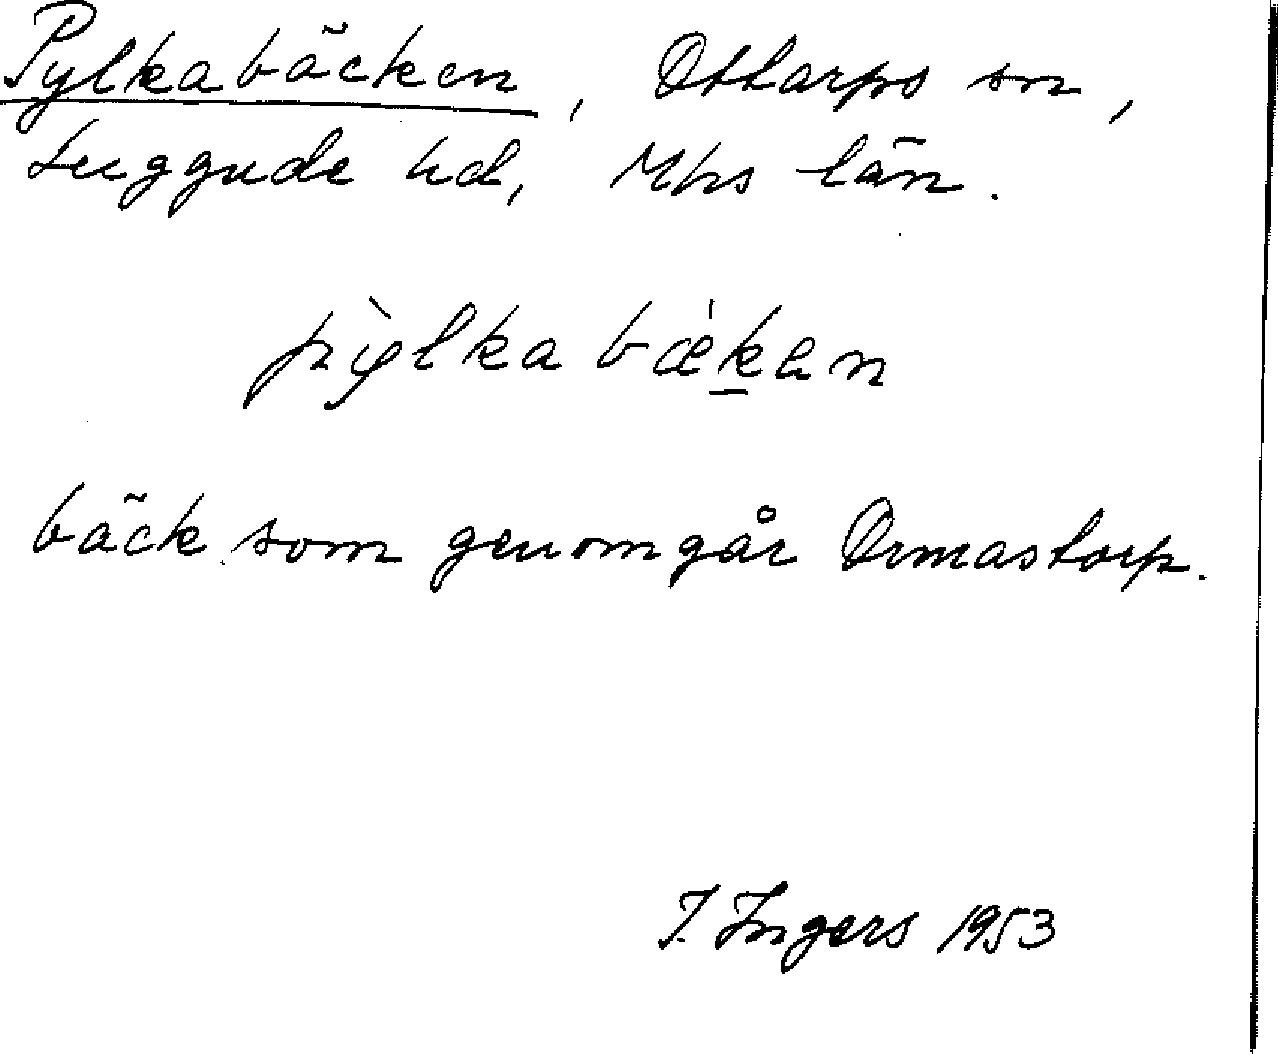 Pylkabäcken, Ottarps sn,
Luggude hd, Mhs län.
pỳlkabæ̀kan
bäck som genomgår Ormastorp.
I. Ingers 1953